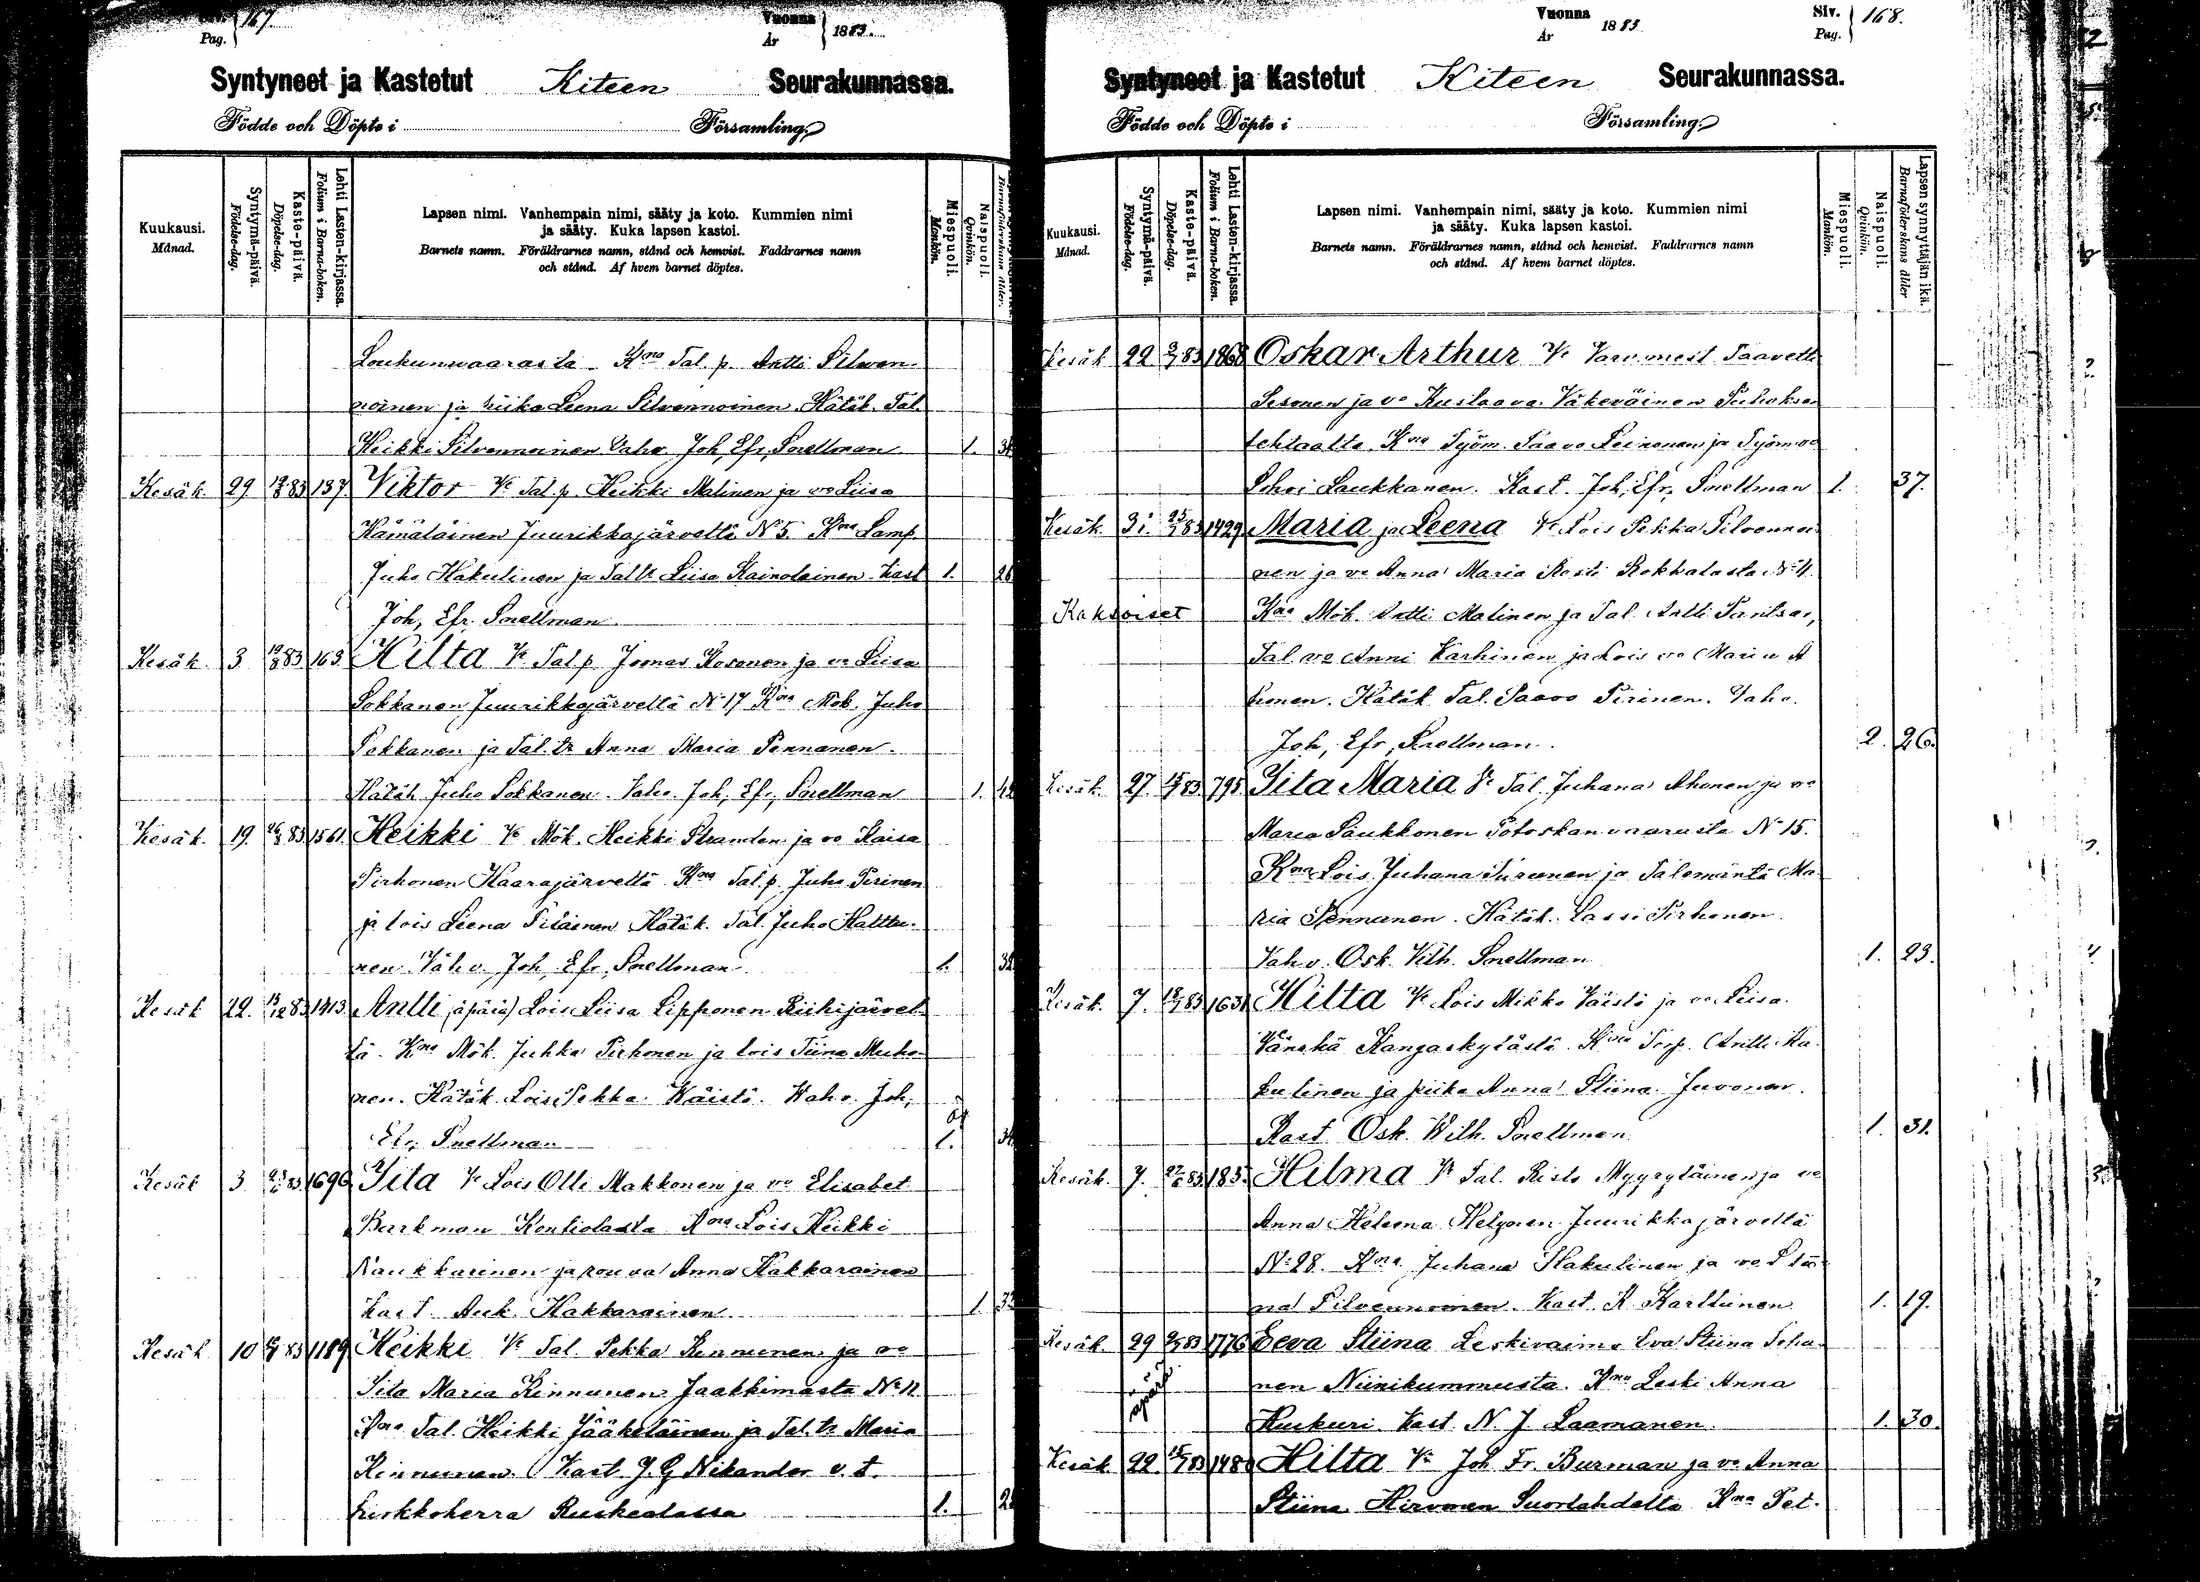 Siv. 167.
Pag.
Vuonna 1883.
År
Syntyneet ja Kastetut Kiteen Seurakunnassa.
Födde och Döpte i Församling
Kuukausi. Månad.
Syntymä-päivä. Födelse-dag.
Kaste-päivä. Döpelse-dag.
Lehti Lasten-kirjassa. Folium i Barna-boken.
Lapsen nimi. Vanhempain nimi, sääty ja koto. Kummien nimi
ja sääty. Kuka lapsen kastoi.
Barnets namn. Föräldrarnes namn, stånd och hemvist. Faddrarnes namn
och stånd. Af hvem barnet döptes.
Miespuoli. Mankön.
Naispuoli. Qvinkön.
Loukunvaarasta. Kna Tal. p. Antti Silven-
noinen ja piika Leena Silvennoinen. Hätäk. Tal.
Heikki Silvennoinen Vahv. Joh, Efr, Snellman 1.
Kesäk. 29 83 137 Viktor Vt Tal p. Heikki Malinen ja vo Liisa
Hämäläinen Juurikkajärveltä No 5. Kna Lamp.
Juho Hakulinen ja Tal tr Liisa Kainolainen. Kast 1. 26
Joh, Efr. Snellman
Kesäk. 3 83 163 Hilta Vt Tal p. Joonas Kosonen ja vo Liisa
Sokkanen Juurikkajärveltä No 17 Kna Mök. Juho
Pakkanen ja Tal. tr Anna Maria Pennanen.
Hätäk Juho Sokkanen. Vahv. Joh, Efr, Snellman 1.
Kesäk. 19. 83 1561. Heikki Vt Mök. Heikki Stranden ja vo Kaisa
Pirhonen Haarajärveltä Kna Tal. p. Juho Pirinen
ja lois Leena Hätäk. Tal. Juho Halttu-
nen. Vahv. Joh, Efr, Snellman 1.
Kesäk 22. 83 1413 Antti (äpärä) Lois Liisa Lipponen Riihijärvel-
tä. Kna Mök. Juhka Pirhonen ja lois Tiina Muho-
nen. Hätäk. Lois Pekka Wäistö. Wahv. Joh,
Efr, Snellman 1.
Kesäk 3 83 1696 Iita Vt Lois Olli Makkonen ja vo Elisabet
Barkman Kontiolasta Kna Lois Heikki
Naukkarinen ja rouva Anna Kakkarainen
Kast. Auk. Kakkarainen 1
Kesäk 10 83 1189 Heikki Vt Tal. Pekka Kinnunen ja vo
Iita Maria Kinnunen Jaakkimasta No 12
Kna Tal. Heikki Jääskeläinen ja Tal. tr Maria
Kinnunen. Kast. J. G Nikander v. t.
kirkkoherra Ruskealassa 1.
Vuonna 1883
År
Siv. 168.
Pag.
Syntyneet ja Kastetut Kiteen Seurakunnassa.
Födde och Döpte i Församling
Kuukausi. Månad.
Syntymä-päivä. Födelse-dag.
Kaste-päivä. Döpelse-dag.
Lehti Lasten-kirjassa. Folium i Barna-boken.
Lapsen nimi. Vanhempain nimi, sääty ja koto. Kummien nimi
ja sääty. Kuka lapsen kastoi.
Barnets namn. Föräldrarnes namn, stånd och hemvist. Faddrarnes namn
och stånd. Af hvem barnet döptes.
Miespuoli. Mankön.
Naispuoli. Qvinkön.
Lapsen synnyttäjän ikä. Barnaföderskans ålder
Kesäk 22 83 1868 Oskar Arthur Vt Varv. mest. Taavetti
Sesonen ja vo Kustaava Väkeväinen Puhoksen
tehtaalta. Kna Työm. Paavo Leinonen ja Työm. vo
Lohvi Laukkanen. Kast. Joh, Efr, Snellman 1. 37.
Kesäk. 31. 83 1429 Maria ja Leena Vt Lois Pekka Silvennoi-
nen ja vo Anna Maria Rosti Rokkalasta No 4.
Kaksoiset Kna Mök. Antti Malinen ja Tal. Antti
Tal. vo Anni Karhinen, ja Lois vo Maria A
honen. Hätäk Tal. Paavo Pirinen. Vahv.
Joh, Efr, Snellman. 2. 26.
Kesäk. 27. 83 795. Iita Maria Vt Tal. Juhana Ahonen ja vo
Maria Laukkonen Potoskanvaarasta No 15.
Kna Lois Juhana ja Talemäntä Ma
ria Pennunen. Hätäk. Lassi Pirhonen.
Vahv. Osk. Vilh. Snellman 1. 23.
Kesäk. 7. 83 163 Hilta Vt Lois Mikko Väistö ja vo Liisa
Vänskä Kangaskylästä. Kna Torp. Antti Ha-
kulinen ja piika Anna Stiina Juvonen.
Kast. Osk. Wilh. Snellman. 1. 31.
Kesäk. 7. 83 185. Hilma Vt Tal. Risto Myyryläinen ja vo
Anna Helena Juurikkajärveltä
No 28. Kna Juhana Hakulinen ja vo Stii-
na Silvennoinen. Kast. K. Karttunen 1. 19.
Kesäk. 29 83 1776 Eeva Stiina Leskivaimo Eva Stiina
äpärä nen Niinikummusta. Kna Leski Anna
Kukuri. Kast. N. J. Laamanen. 1. 30.
Kesäk. 22. 83 148 Hilta Vt Joh Fr. Burman ja vo Anna
Stiina Hirvonen Suorlahdelta Kna Pet.